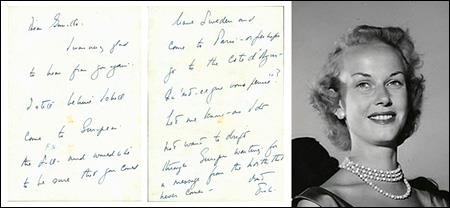 Dear Gunilla:
I was very glad
to hear from you again.
I believe I shall
come to Europe
the fall - and would like
to be sure that you could
leave Sweden and
come to Paris - or perhaps
go to the Cote d'Azur -
Qu'est-ce que vous pensez?
Let me know - as I do
not want to drift
through Europe waiting for
a message from the North that
never comes -